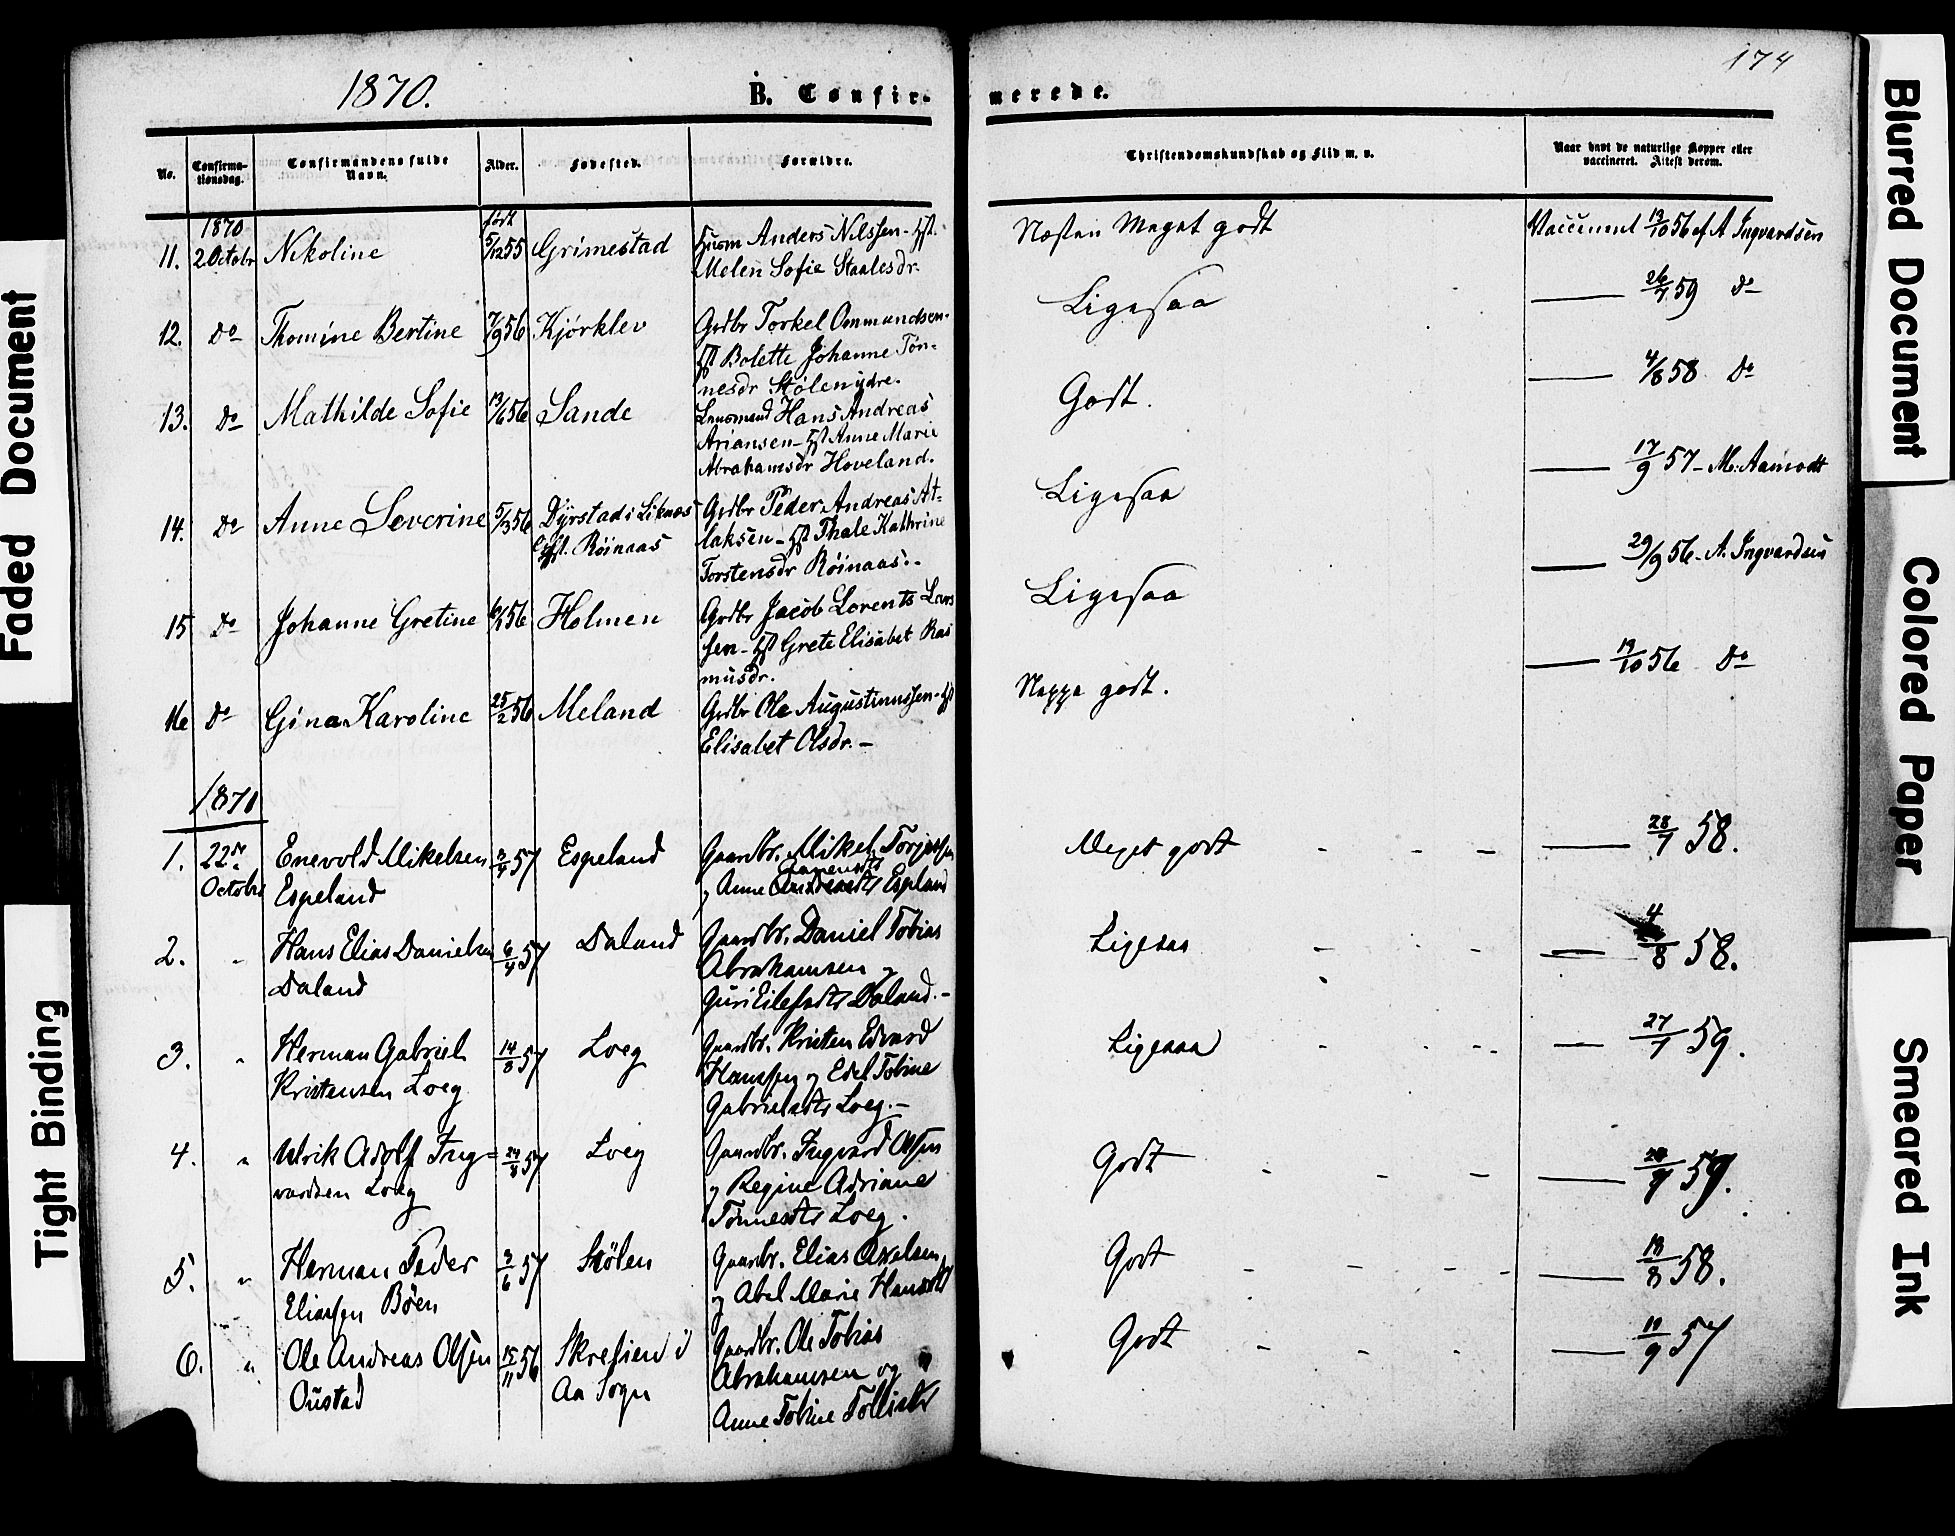 174
1870.
B. Confir-
merede.
No.
Confirma-
tionsdag.
Confirmandens fulde
Navn.
Alder.
Fødested.
Forældre.
Christendomskundskab og Flid m. v.
Naar havt de naturlige Kopper eller
vaccineret. Attest derom.
1870
født
11. 2 Octobr Nikoline 5/12 55 Grimestad
Anders Nilssen - Hst.
Melen Sofie Staalesdr.
Næsten Meget godt
Vaccineret 19/10 56 af A Ingvardsen
12. Do Thomine Bertine 7/9 56 Kjörklev
Grdbr Torkel Ommundsen-
Hst Bolette Johanne Tön-
nesdr Stölen ydre.
Ligesaa
26/7 59 Do
13. Do Mathilde Sofie 13/6 56 Sande
Lensmand Hans Andreas
Ariansen - Hst Anne Marie
Abrahamsdr Hoveland.
Godt.
4/8 58 Do
14. Do Anne Severine 5/3 56 Dyrstad i Liknæs
Röinaas
Grdbr Peder Andreas At-
laksen - Hst Thale Kathrine
Torstensdr Röinaas.
Ligesaa
17/9 57 - M. Aamodt
15 Do Johanne Gretine 56 Holmen
Grdbr Jacob Lorents Lars
sen - Hst Grete Elisabet Ras
musdr.
Ligesaa
29/9 56 - A. Ingvardsen
16 Do Gina Karoline 25/2 56 Meland
Grdbr Ole Augustinussen - Hst
Elisabet Olsdr. -
Neppe godt.
19/10 56 Do
1871
1. 22de
Octobr
Enevold Mikelsen
Espeland
57 Espeland
Gaardbr. Mikel Torjussen
og Anne Espeland
Meget godt - - -
28/7 58.
2. " Hans Elias Danielsen
Daland
6/4 57 Daland
Gaardbr. Daniel Tobias
Abrahamsen og
Guri Eilefsdtr Daland. -
Ligesaa - -
4/8 58.
3. " Herman Gabriel
Kristensen Loeg
14/8 57 Loeg
Gaardbr. Kristen Edvard
Hanssen og Edel Tobine
Gabrielsdtr Loeg. -
Ligesaa - - -
27/7 59.
4. " Ulrik Adolf Ing=
vardsen Loeg
24/8 57 Loeg
Gaardbr. Ingvard Olsen
og Regine Adriane
Tönnesdtr Loeg.
Godt - - -
59.
5. " Herman Peder
Eliassen Böen
3/6 57 Stölen
Gaardbr. Elias Axelsen
og Abel Marie Hansdtr
Godt - - - -
18/8 58.
6. " Ole Andreas Olsen
Oustad
15/11 56 Skreslien i
Aa Sogn
Gaardbr. Ole Tobias
Abrahamsen og
Anne Tobine Tollisdtr
Godt - - -
57
Faded Document
Tight Binding
Blurred Document
Colored Paper
Smeared Ink